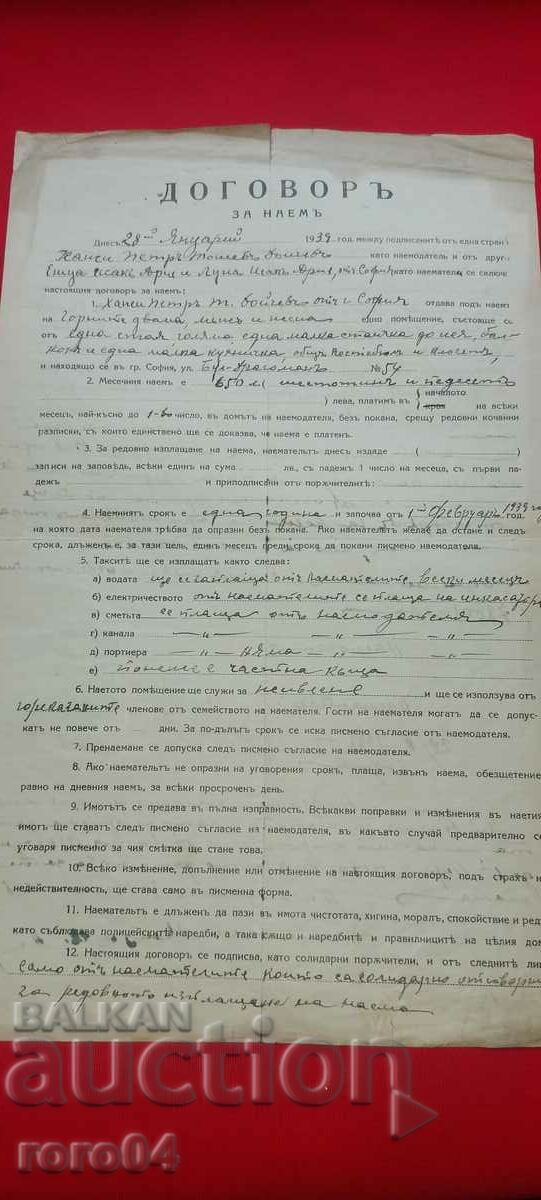 ДОГОВОРЪ
ЗА НАЕМЪ
Днесъ 28-й Януарий 1939 год. между подписанитѣ отъ една стран
Ханси Петръ Тошевъ като наемодателъ и отъ друг
Исакъ и Луна Исакъ отъ София като наематель се сключ
настоящия договоръ за наемъ:
1. Ханси Петръ Т. отъ г. София отдава подъ наем
на Горните двама, едно помѣщение, състояще с
отъ една стая голяма, една малка стаичка до нея, бал-
конъ и една малка кухничка, общъ и клозетъ,
и находящо се въ гр. София, ул. Бул. Драгоманъ № 54
2. Месечния наемъ е 650 лв. шестотинъ и педесетъ
) лева, платимъ въ { началото края на всѣки
месецъ, най-късно до 1-во число, въ домътъ на наемодателя, безъ покана, срещу редовни кочанни
разписки, съ които единствено ще се доказва, че наема е платенъ.
3. За редовно изплащане на наема, наемательтъ днесъ издаде (
записи на заповѣдь, всѣки единъ на сума лв., съ падежъ 1 число на месеца, съ първи па-
дежъ и приподписани отъ поржчителитѣ:
4. Наемниятъ срокъ е една година и започва отъ 1-й Февруари 1939 год.
на която дата наемателя трѣбва да опразни безъ покана. Ако наемательтъ желае да остане и след
срока, длъженъ е, за тази цель, единъ месецъ преди срока да покани писмено наемодателя.
5. Таксигѣ ще се изплащатъ както следва:
а) водата ще се заплаща отъ наемателите, всеки месецъ
б) електричеството отъ наемателите се плаща на инкасатора
в) сметьта се плаща отъ наемодателя
г) канала — „ — — „ — — „ —
д) портиера — „ — няма — „ — — „ —
е) понеже е частна къща
6. Наетото помѣщение ще служи за живѣене и ще се използува отъ
горекаzаните членове отъ семейството на наемателя. Гости на наемателя могатъ да се допус-
катъ не повече отъ дни. За по-дълъгъ срокъ се иска писмено съгласие отъ наемодателя.
7. Пренаемане се допуска следъ писмено съгласие на наемодателя.
8. Ако наемательтъ не опразни на уговорения срокъ, плаща, извънъ наема, обезщетение
равно на дневния наемъ, за всѣки просроченъ день.
9. Имотътъ се предава въ пълна изправность. Всѣкакви поправки и измѣнения въ наетия
имотъ ще ставатъ следъ писмено съгласие на наемодателя, въ какъвто случай предварително се
уговаря писмено за чия смѣтка ще стане това.
10. Всѣко измѣнение, допълнение или отмѣнение на настоящия договоръ, подъ страхъ н
недействителность, ще става само въ писменна форма.
11. Наемательтъ е длъженъ да пази въ имота чистотата, хигина, моралъ, спокойствие и ред
като съблюдава полицейскитѣ наредби, а така сжщо и наредбитѣ и правилницитѣ на цѣлия дом
12. Настоящия договоръ се подписва, като солидарни поржчители, и отъ следнитѣ ли
само отъ наемателите които са солидарно отговорни
за редовното изплащане на наема
BALKAN
auction
roro04